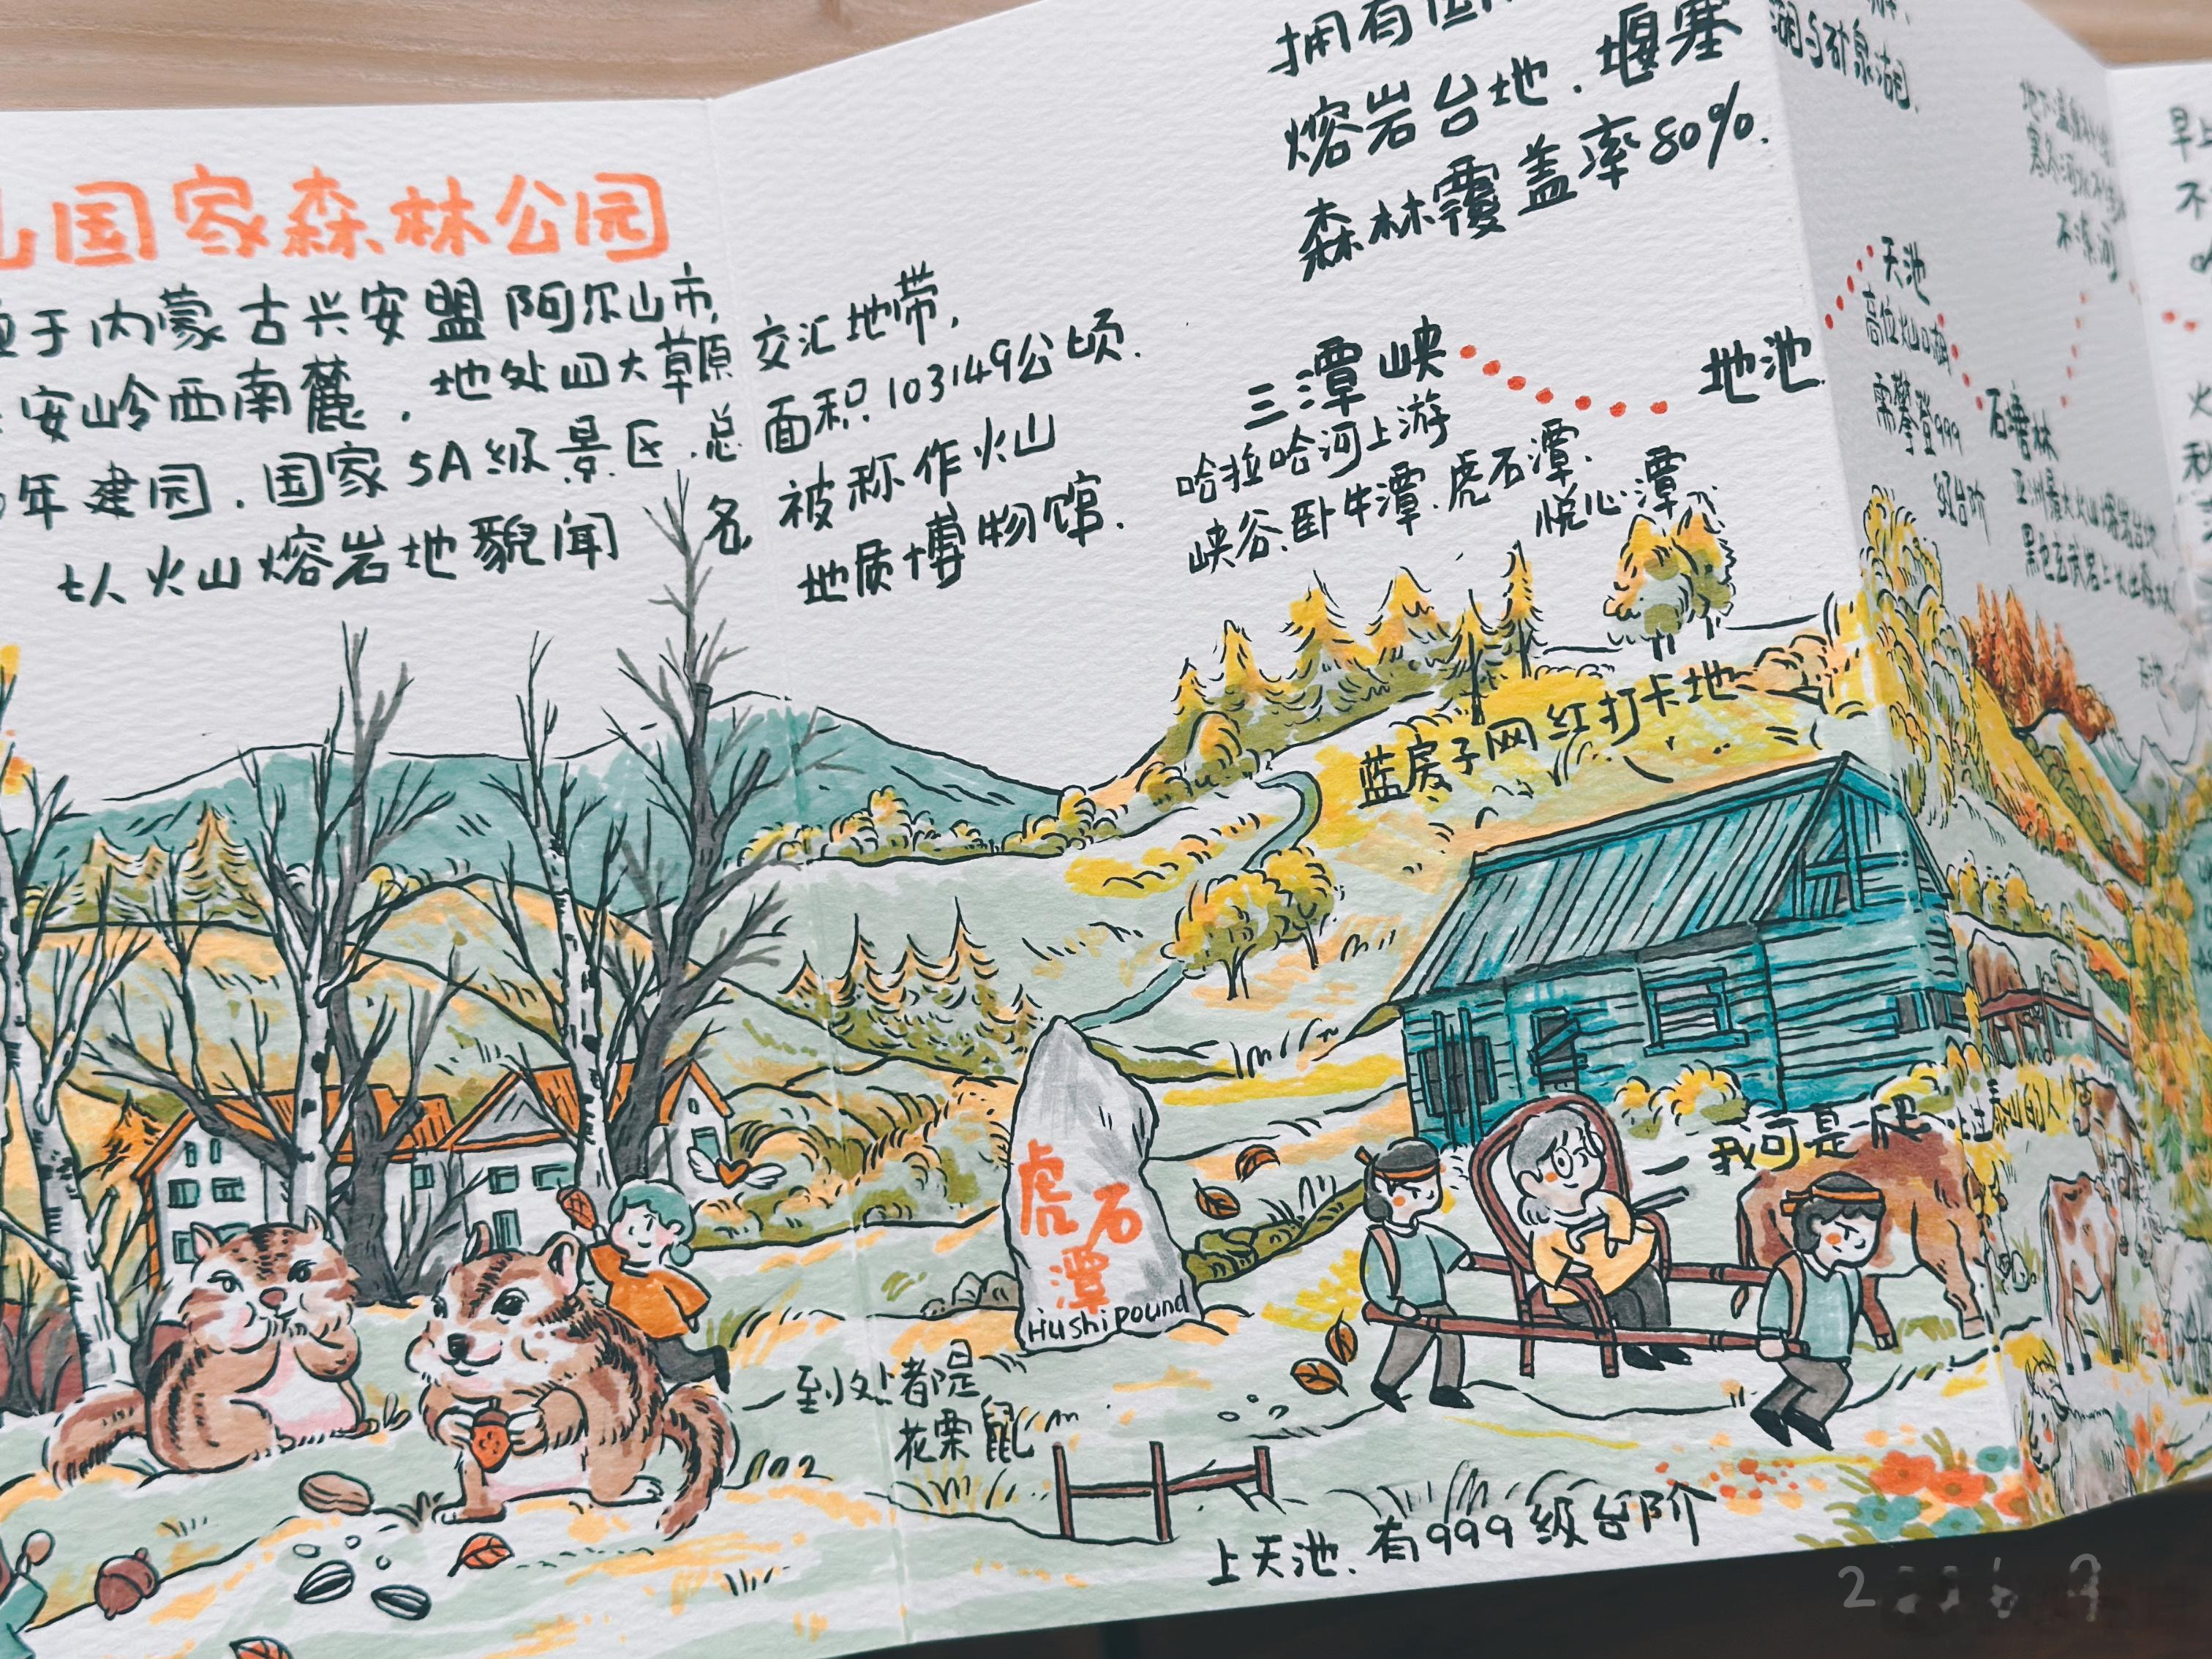 国家森林公园
于内蒙古兴安盟阿尔山市,
安岭西南麓,地处四大草原交汇地带,
年建园.国家5A级景区.总面积103149公顷.
以火山熔岩地貌闻名被称作火山
地质博物馆.
拥有
熔岩台地.堰塞
湖与矿泉湖.
森林覆盖率80%.
三潭峡
哈拉哈河上游
峡谷.卧牛潭.虎石潭.
悦心潭
地池
天池
高位火山口湖
需攀登999
级台阶
石塘林
亚洲最大火山熔岩台地
不冻河
蓝房子网红打卡地
虎石潭
Hushi pound
我可是爬过泰山的人!
到处都是
花栗鼠
上天池.有999级台阶
早上